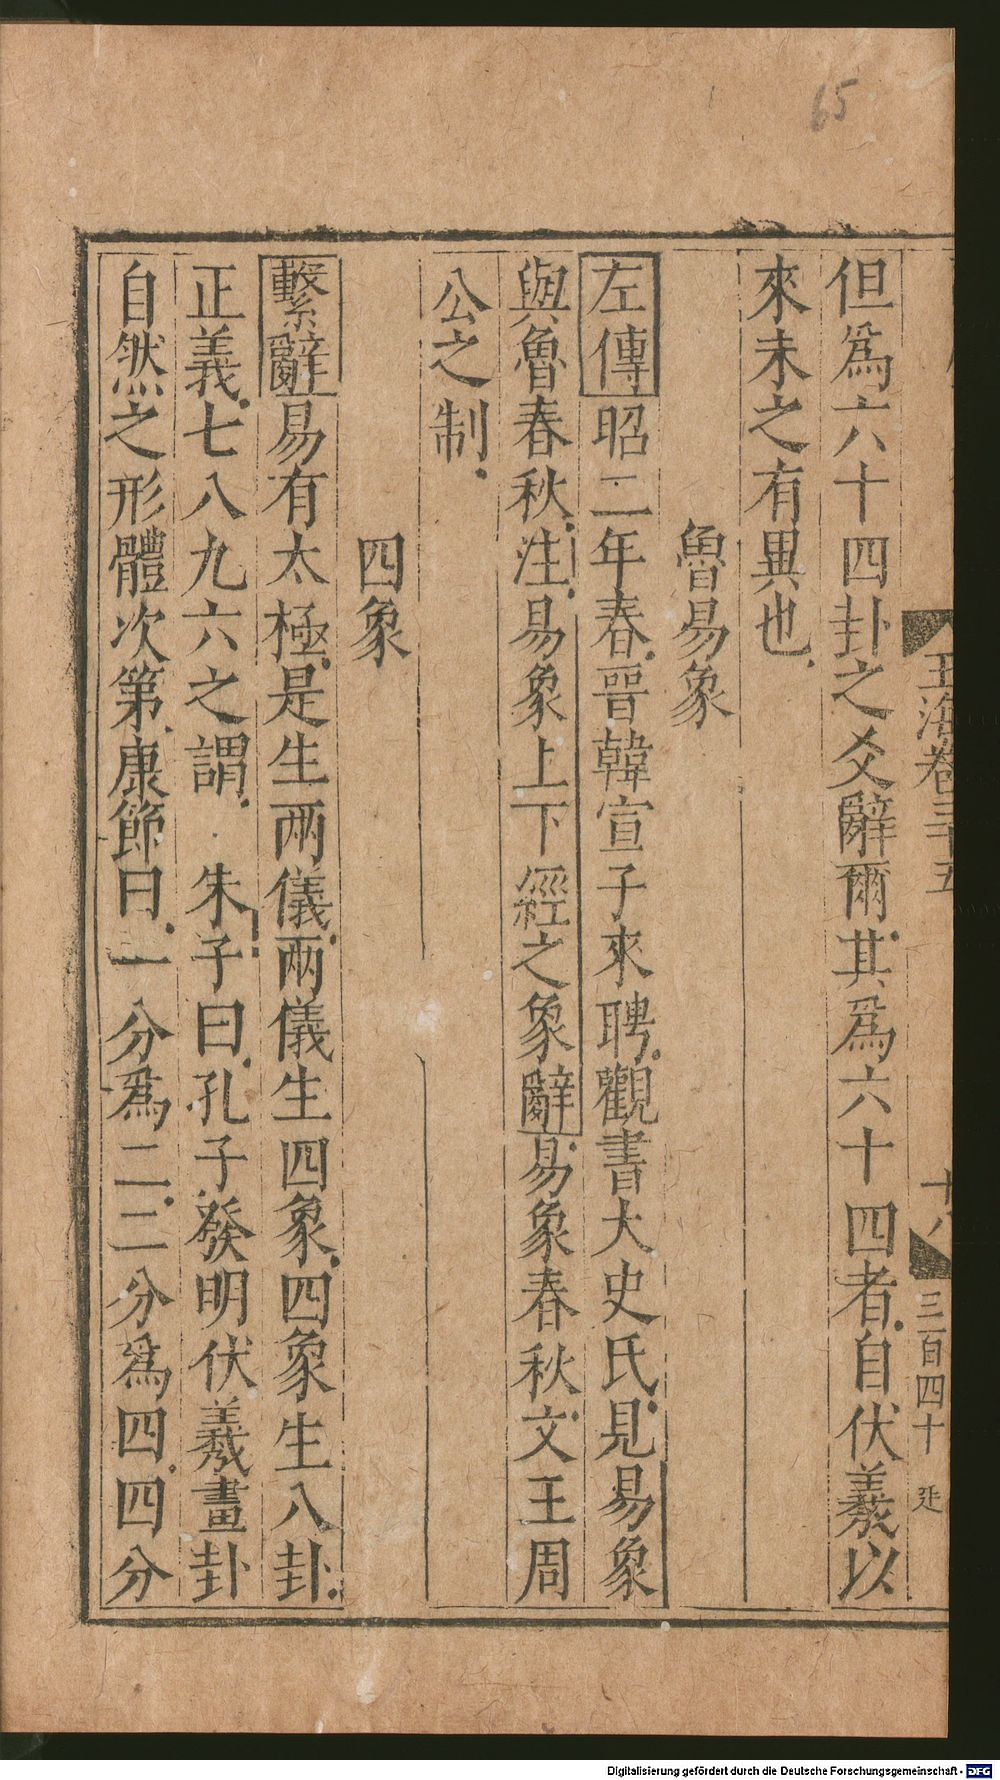 65
玉海卷三十五
十八
三百四十
但爲六十四卦之爻辭爾其爲六十四者自伏羲以
來未之有異也
魯易象
左傳昭二年春晉韓宣子來聘觀書大史氏見易象
與魯春秋注易象上下經之象辭易象春秋文王周
公之制
四象
繫辭易有太極是生兩儀兩儀生四象四象生八卦
正義七八九六之謂 朱子曰孔子發明伏羲畫卦
自然之形體次第康節曰一分爲二二分爲四四分
Digitalisierung gefördert durch die Deutsche Forschungsgemeinschaft - DFG